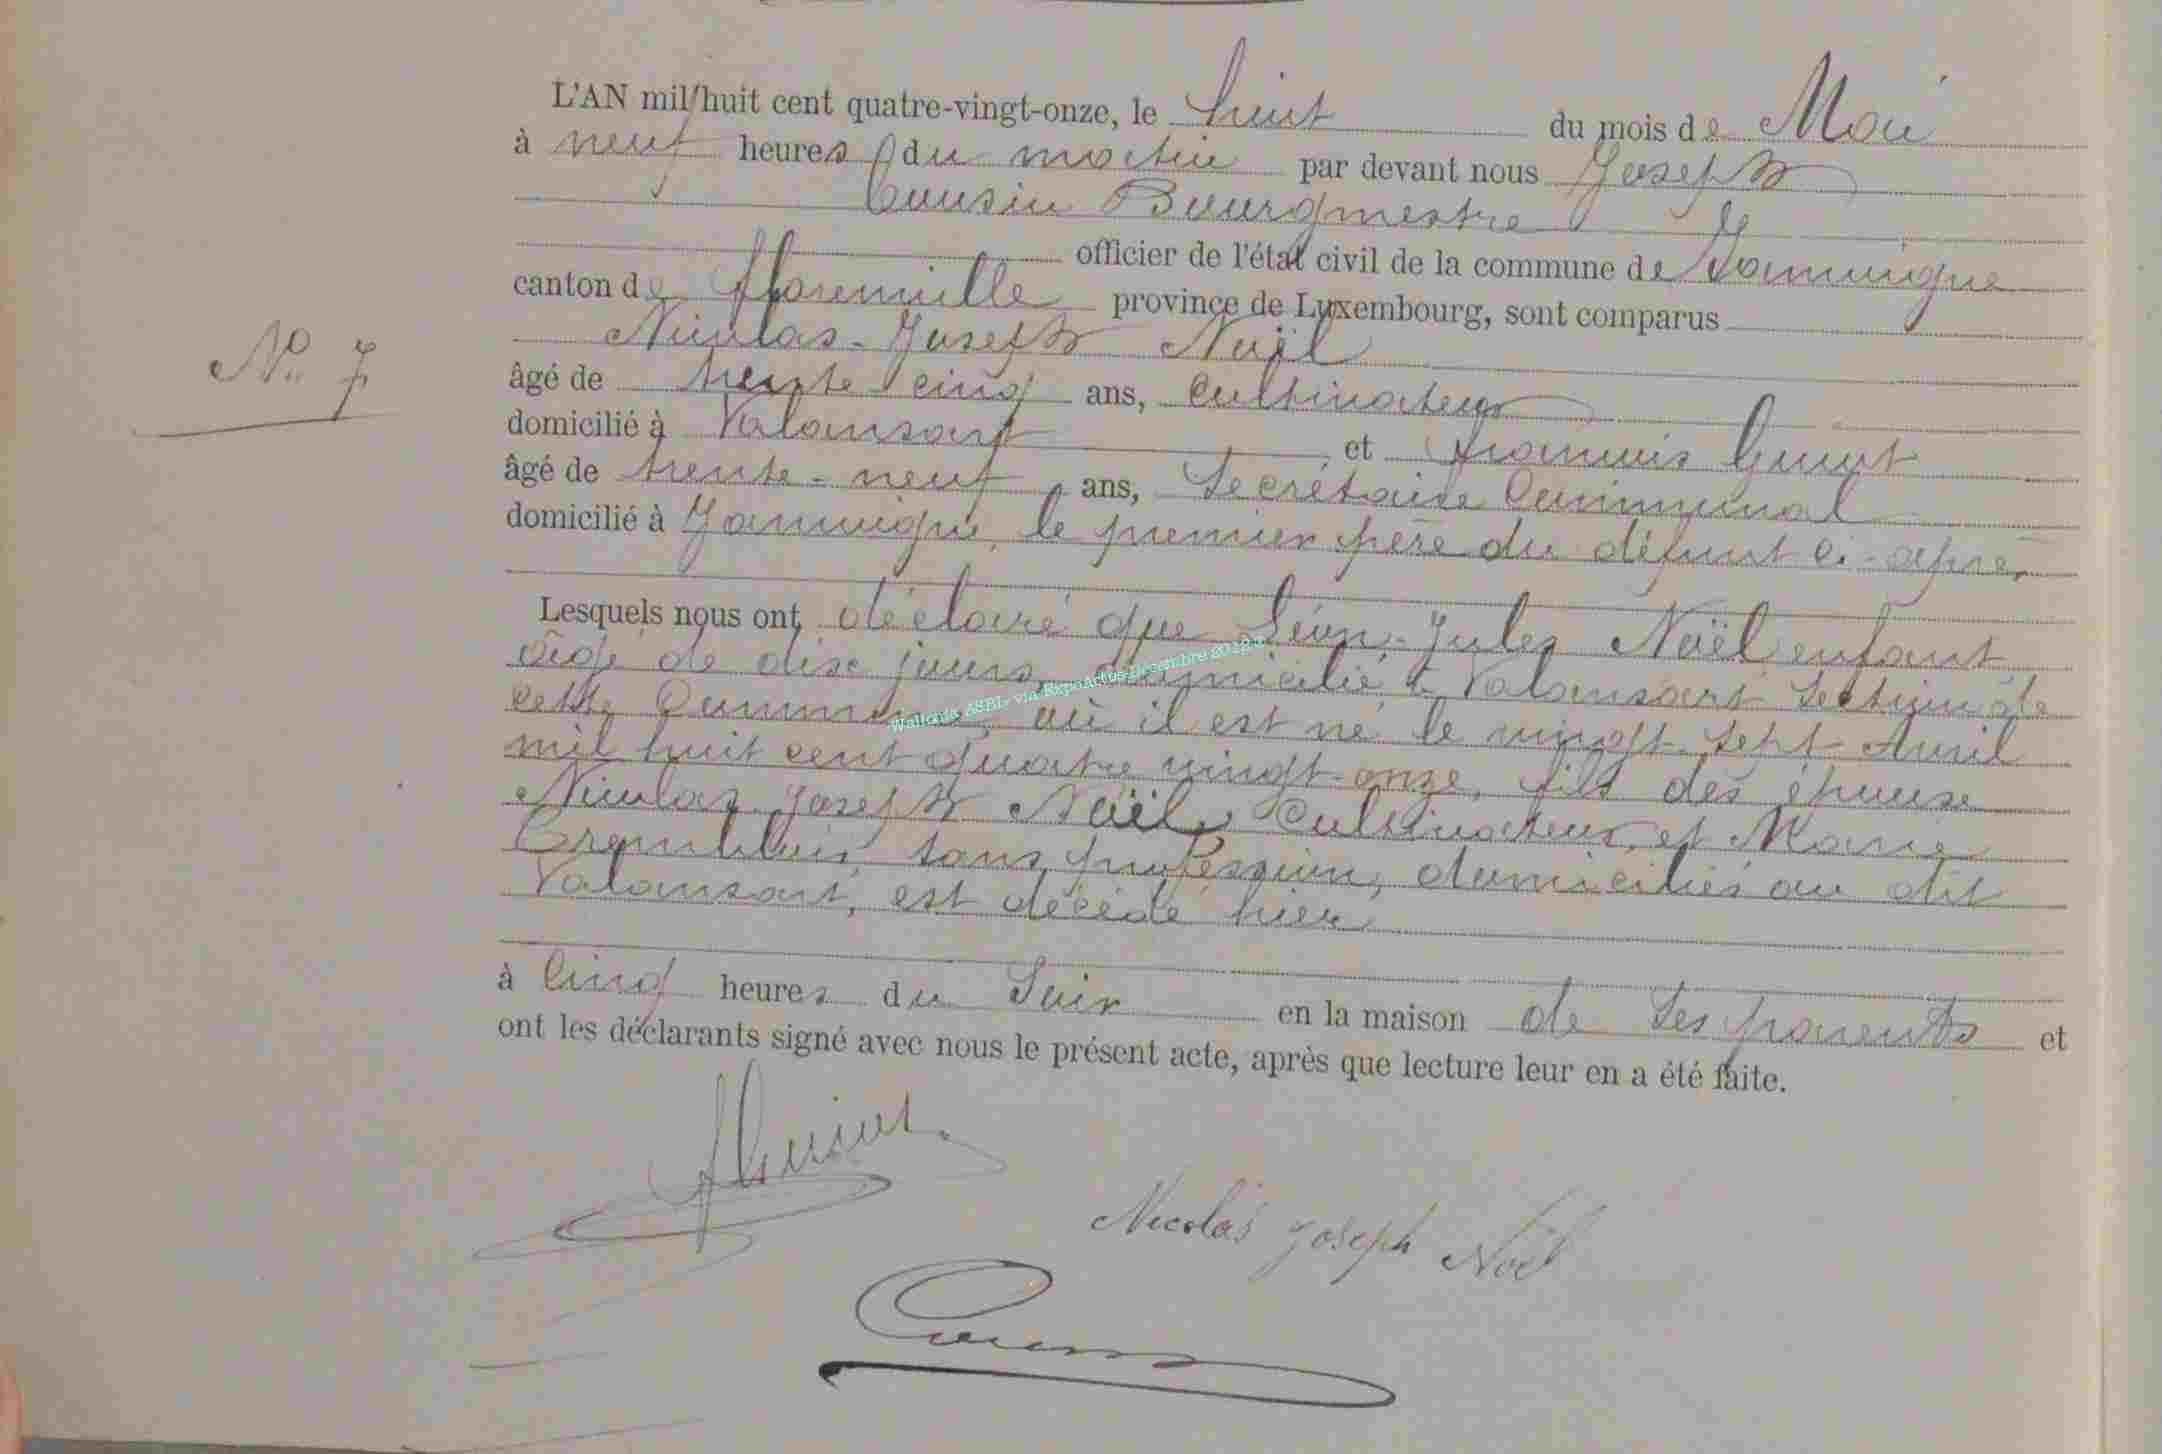 L'AN mil huit cent quatre-vingt-onze, le huit du mois de Mai
à neuf heures du matin par devant nous Joseph
Cousin Bourgmestre
officier de l'état civil de la commune de Jamoigne
canton de Florenville province de Luxembourg, sont comparus
Nicolas-Joseph Noël
N° 7
âgé de trente cinq ans, Cultivateur
domicilié à Valansart et François Guiot
âgé de trente-neuf ans, Secrétaire Communal
domicilié à Jamoigne, le premier père du défunt ci-après
Lesquels nous ont déclaré que Léon-Jules Noël enfant
âgé de dix jours, domicilié à Valansart section de
cette Commune où il est né le vingt-sept Avril
mil huit cent quatre vingt-onze, fils des époux
Nicolas Joseph Noël, Cultivateur, et Marie
sans profession, domiciliés au dit
Valansart, est décédé hier
à Cinq heures du Soir en la maison de ses parents et
ont les déclarants signé avec nous le présent acte, après que lecture leur en a été faite.
FGuiot
Nicolas Joseph Noël
Cousin
Wallonia ASBL via ExpoActes Décembre 2012